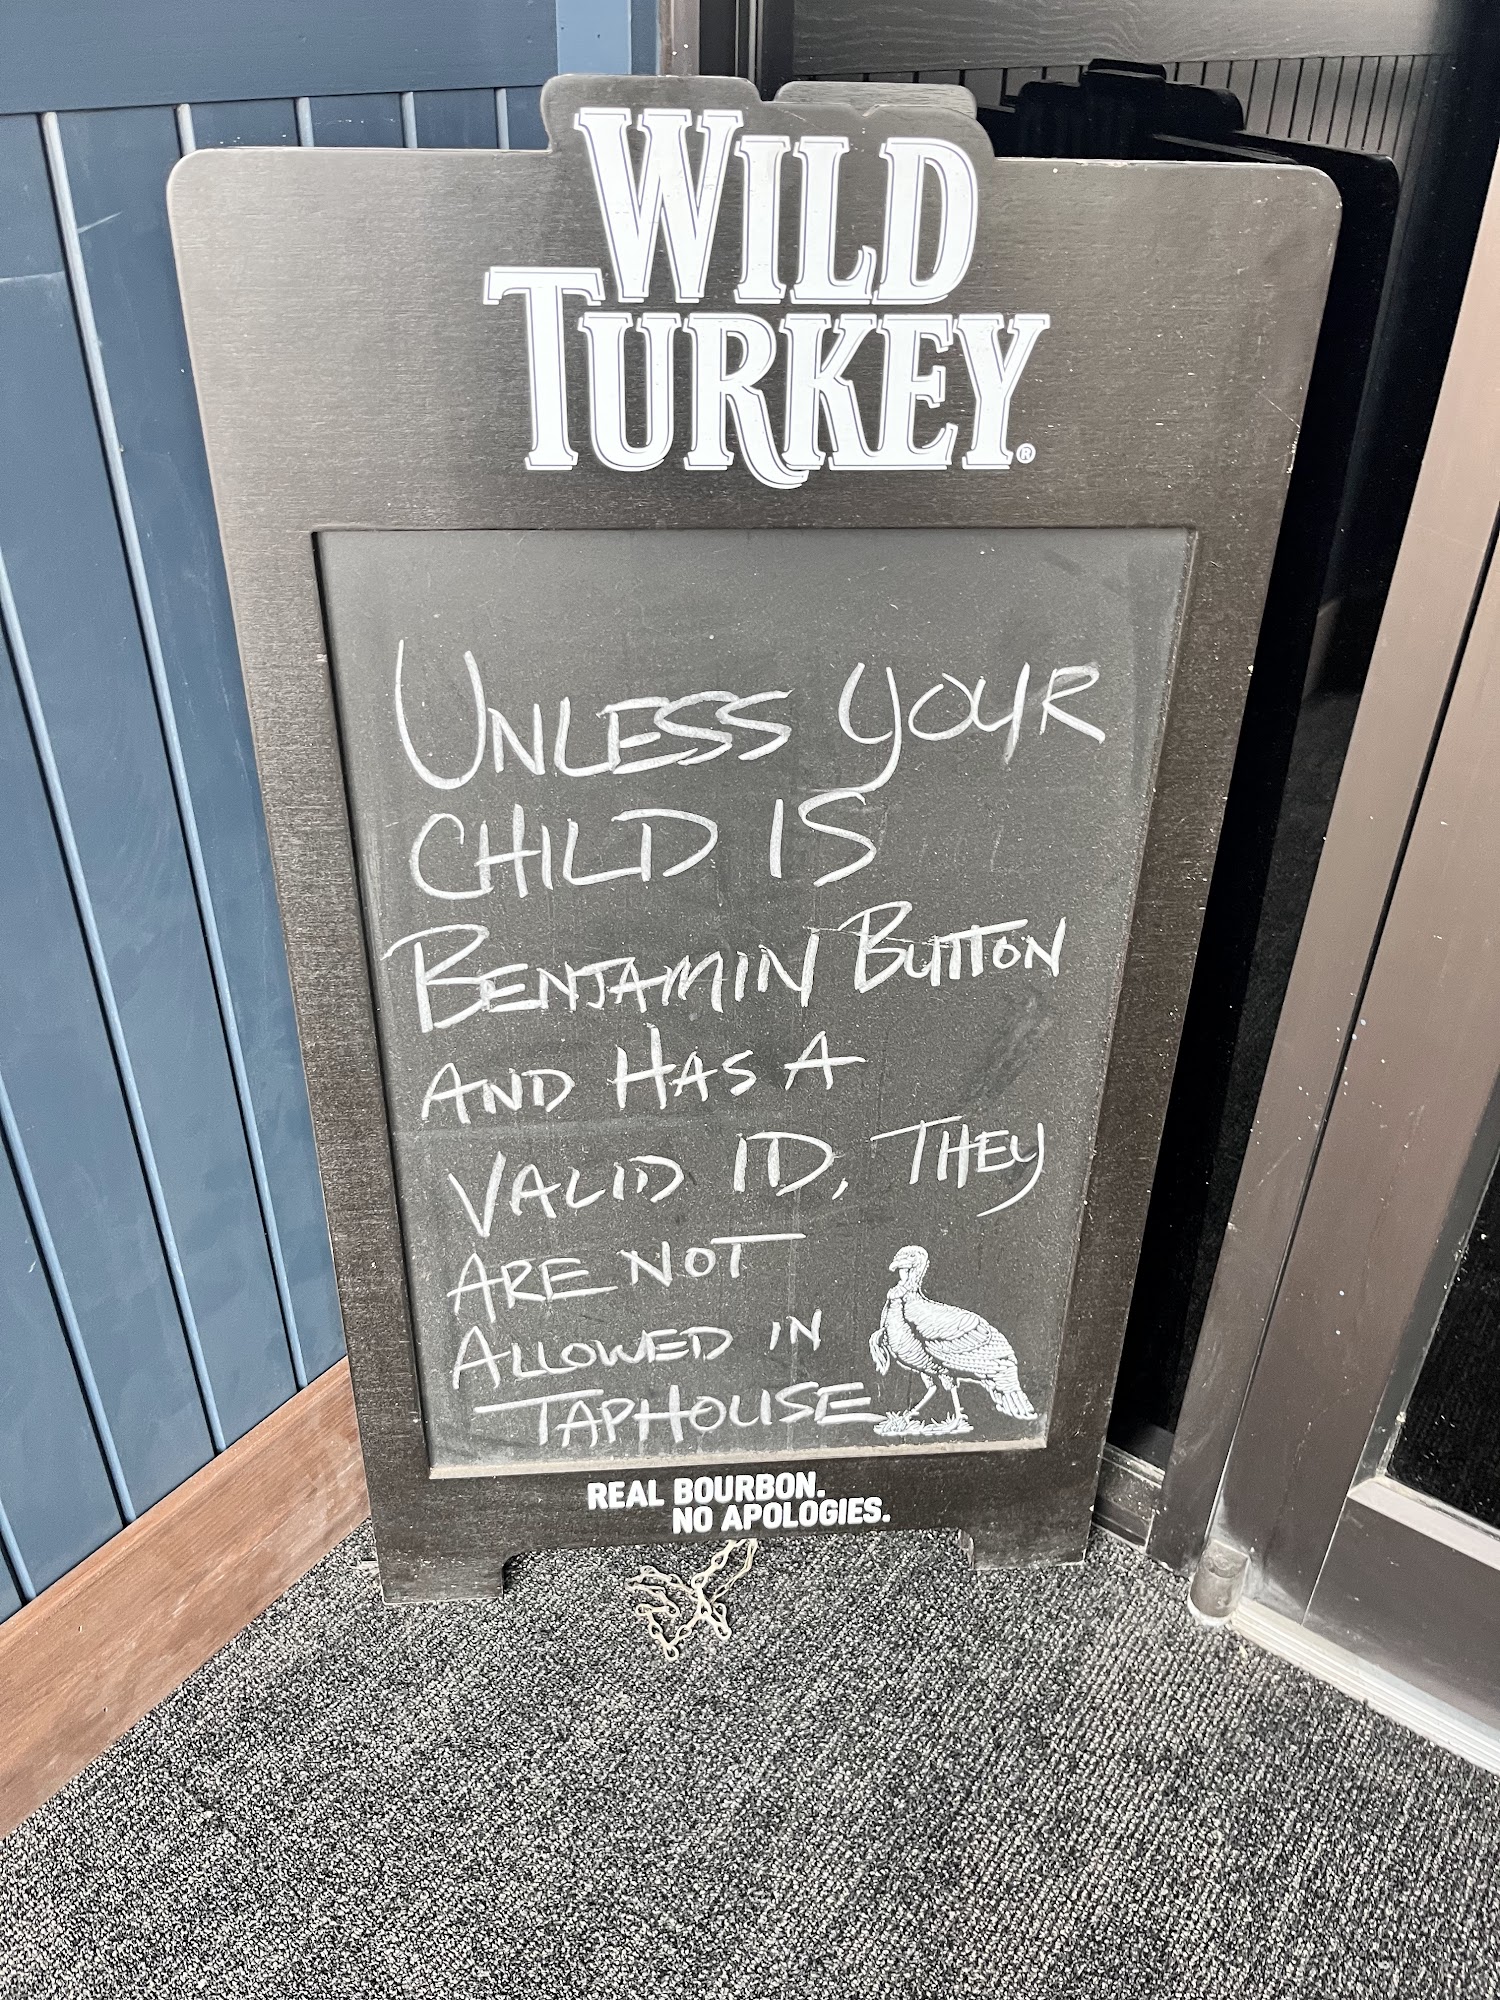 WILD
TURKEY®
UNLESS YOUR
CHILD IS
BENJAMIN BUTTON
AND HAS A
VALID ID, THEY
ARE NOT
ALLOWED IN
TAPHOUSE
REAL BOURBON.
NO APOLOGIES.